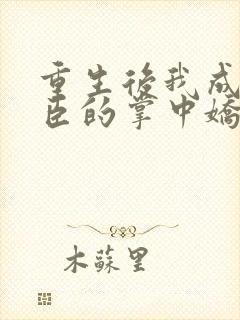 重生後我成
臣的掌中嬌
木蘇里